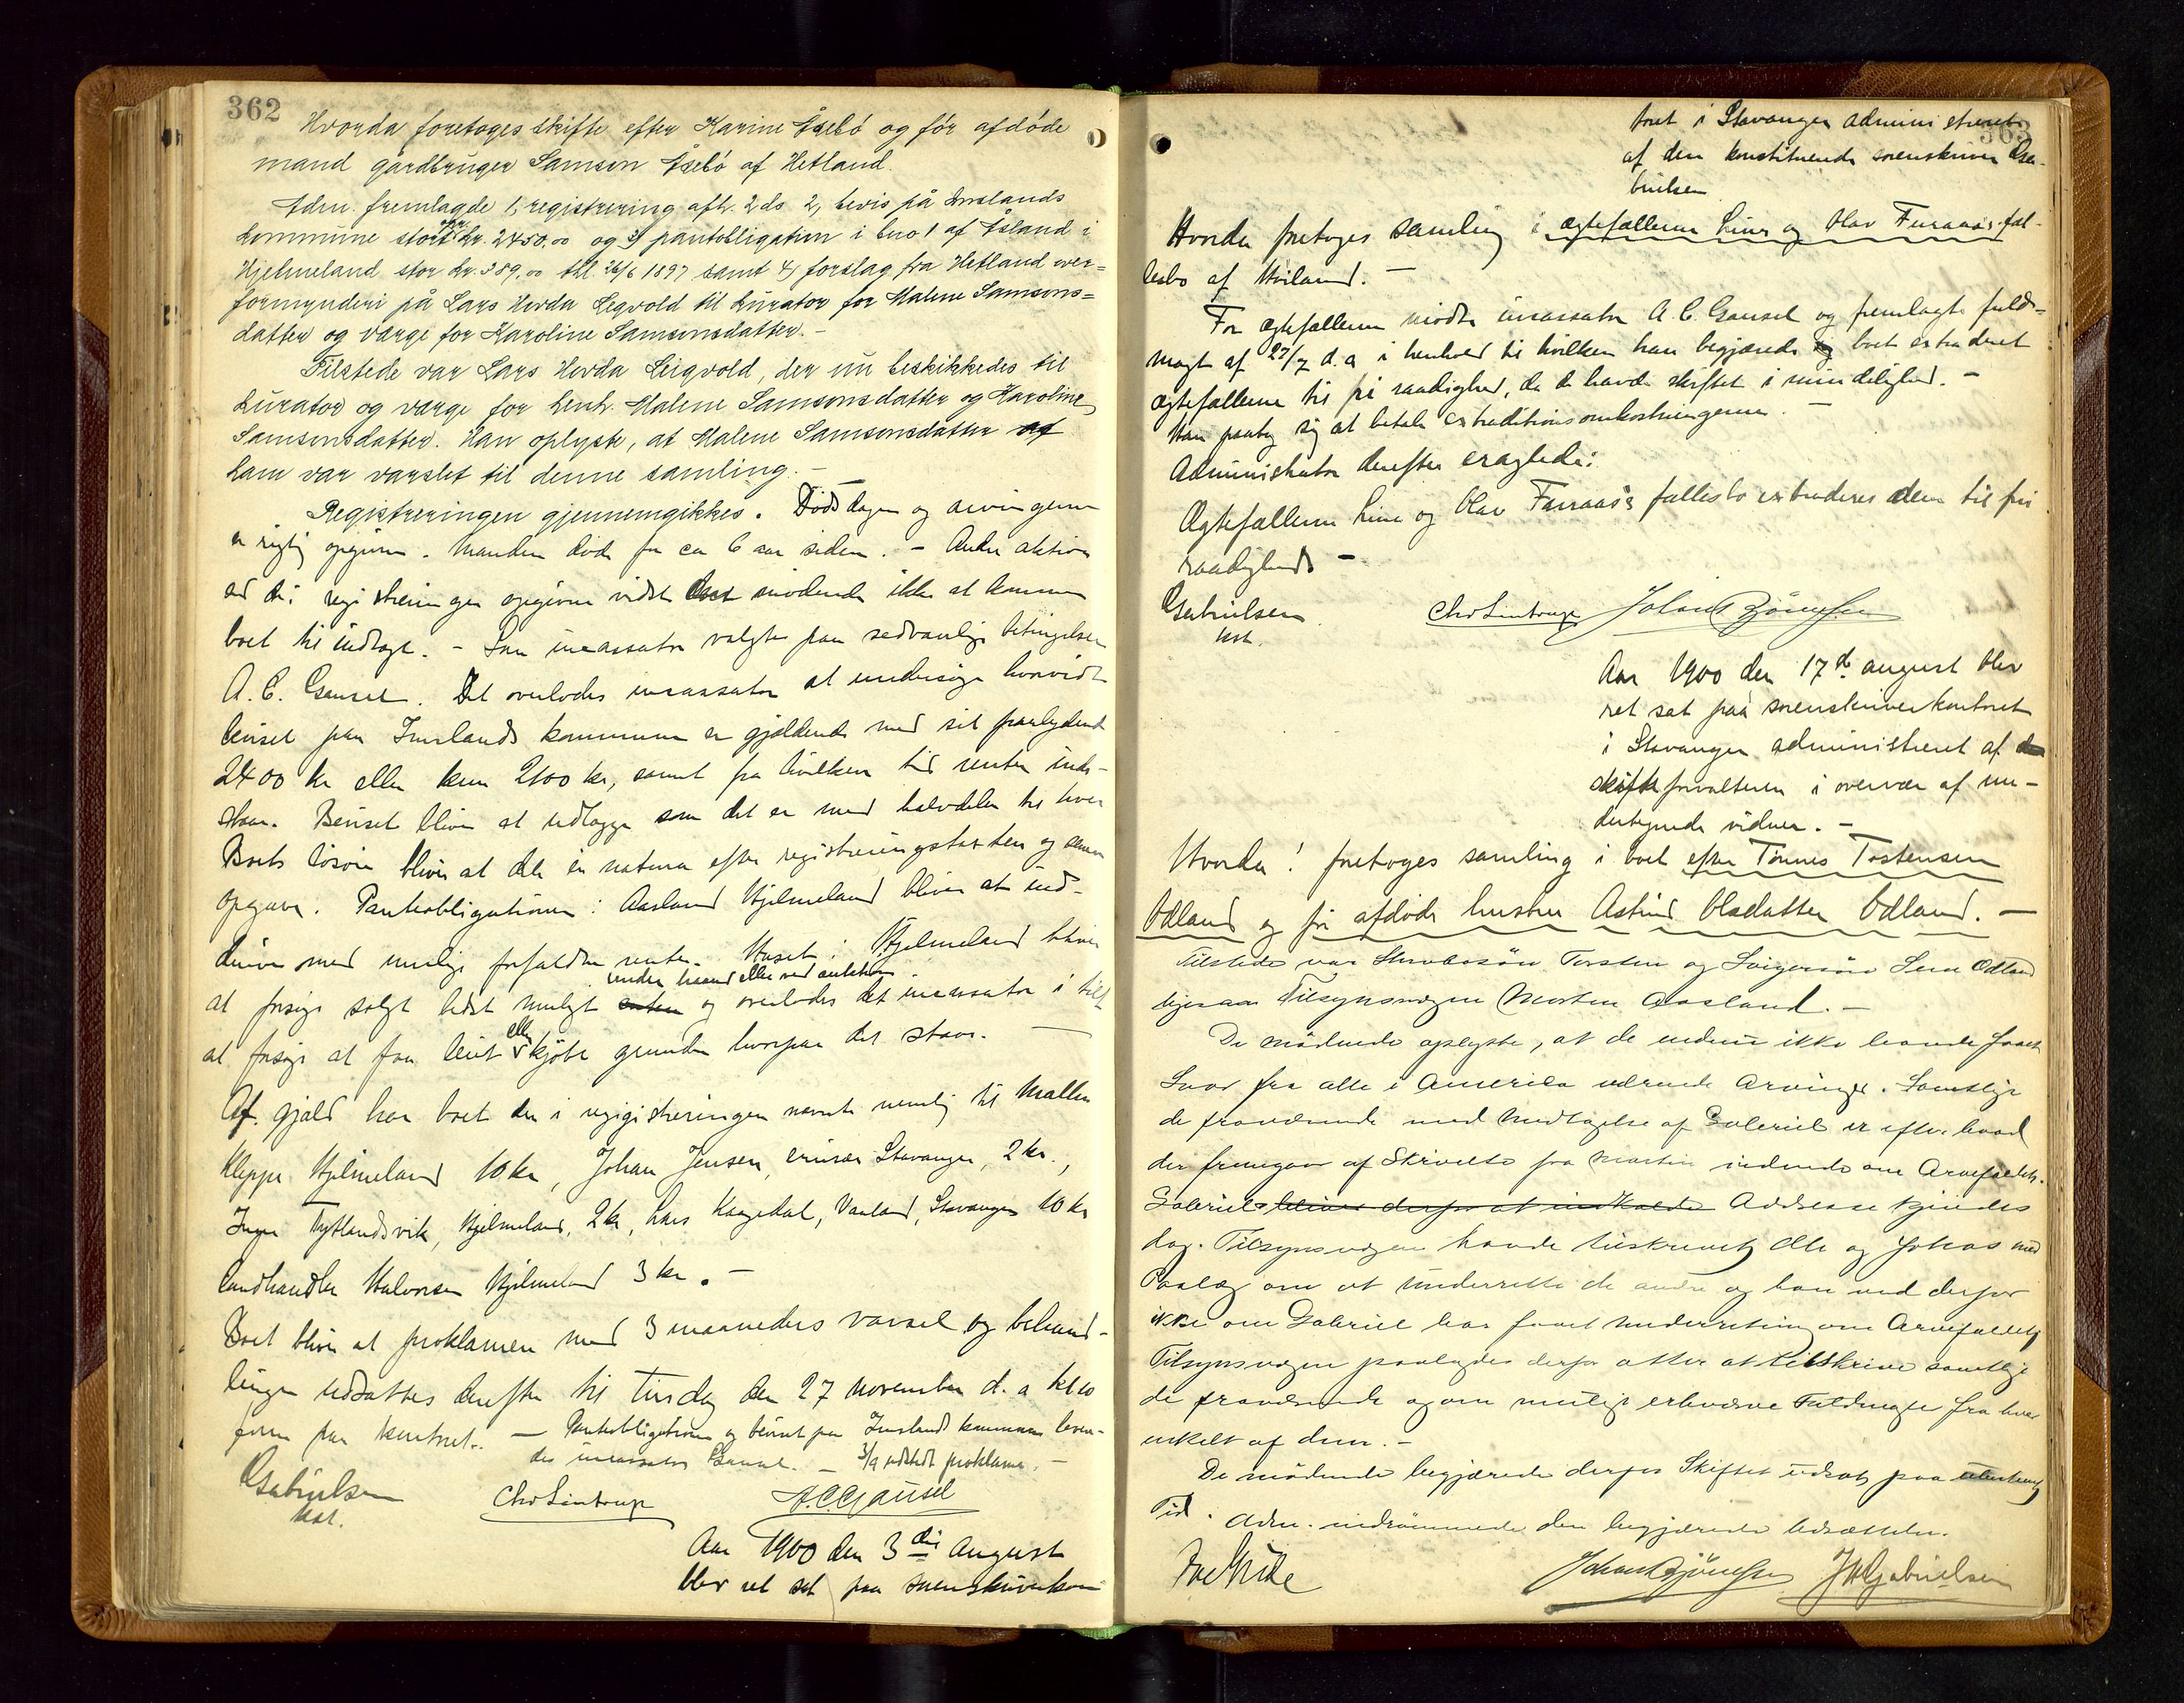 362
Hvorda foretoges skifte efter Karine Åsebö og før afdöde
mand gårdbruger Samson Åsebö af Hetland.
Adm. fremlagde 1, registrering afh. 2 ds 2, bevis på Imslands
kommune stort opr. kr. 2450,00 og 3) pantobligation i bno 1 af Åsland i
Hjelmeland stor kr. 389,00 thl. 26/6 1897 samt 4) forslag fra Hetland over=
formynderi på Lars Hovda Leqvold til kurator for Malene Samsons=
datter og værge for Karoline Samsonsdatter. –
Tilstede var Lars Hovda Leigvold, der nu beskikkedes til
kurator og værge for henh. Malene Samsonsdatter og Karoline
Samsonsdatter. Han oplyste, at Malene Samsonsdatter af
ham var varslet til denne samling. –
Registreringen gjennemgikkes. Dödsdagen og arvingerne
er rigtig opgivne. Manden döde for ca 6 aar siden. – Andre aktiva
end de i registreringen opgivne vidste mödende ikke at komme
boet til indtægt. – Som incassator valgtes paa sedvanlige betingelser
A. C. Gausel. Det overlodes incassator at undersöge hvorvidt
beviset paa Imslands kommune er gjældende med sit paalydende
2400 kr eller kun 2100 kr, samt fra hvilken tid renter inde-
staar. Beviset bliver at udlægge som det er med halvdelen til hver
Boets lösöre bliver at dele in natura efter registreringstaxten og denne
opgave. Pantobligationen i Aasland Hjelmeland bliver at ind-
drive med mulige forfaldne renter. Huset i Hjelmeland bliver
under haand eller ved auktion
at forsöge solgt bedst muligt enten og overlodes det incassator i tilf.
at forsöge at faa leiet eller kjöbe grunden hvorpaa det staar. –
Af gjæld har boet den i regigistreringen nævnte nemlig til Mallen
Kleppe Hjelmeland 10 kr, Johan Jensen, Stavanger, 2 kr.,
Inger Tytlandsvik, Hjelmeland, 2 kr, Lars Kagedal, Varland, Stavanger 10 kr
landhandler Halvorsen Hjelmeland 3 kr. –
Boet bliver at proklamere med 3 maaneders varsel og behand-
lingen udsattes derefter til tirsdag den 27 november d. a. kl 10
form paa kontoret. – Pantobligationen og beviset paa Imslands kommune lever-
des incassator Gausel. – 3/9 udstedt proklama. –
Gabrielsen
kst.
Chr Lintrup
A. C. Gausel
Aar 1900 den 3die August
blev ret sat paa sorenskriverkon
363
toret i Stavanger administreret
af den konstituerede sorenskriver Ga-
brielsen
Hvorda foretoges samling i ægtefællerne Line og Olav Furaas's fæl-
lesbo af Höiland. –
For ægtefællerne mödte incassator A. C. Gausel og fremlagte fuld=
magt af 27/7 d. a. i henhold til hvilken han begjærede og boet extraderet
ægtefællerne til fri raadighed, da de havde skiftet i mindelighed. –
Han paatog sig at betale extraditionsomkostningerne. –
Administrator derefter eragtede:
Ægtefællerne Line og Olav Furaas's fællesbo extraderes dem til fri
raadighed. –
Gabrielsen
kst.
Chr Lintrup Johan Bjönnsen
Aar 1900 den 17de august blev
ret sat paa sorenskriverkontoret
i Stavanger administreret af den
skifteforvalteren i overvær af un-
dertegnede vidner. –
Hvorda! foretoges samling i boet efter Tönnes Tostensen
Ödland og för afdöde hustru Astrid Olsdatter Ödland. –
Tilstede var Torsten og Svigersön Odland
ligesaa Tilsynsværgen Morten Aasland. –
De mödende oplyste, at de endnu ikke havde faaet
Svar fra alle i Amerika værende Arvinger. Samtlige
de fraværende med Undtagelse af Gabriel er efter hvad
der fremgaar af Skrivelse fra Martin vidende om Arvefaldet.
Gabriels bliver derfor at indkalde Addresse kjendes
dog. Tilsynsværgen havde tilskrevet Ole og Johas med
Paalæg om at underrette de andre og han ved derfor
ikke om Gabriel har faaet Underretning om Arvefaldet,
Tilsynsværgen paalagdes derfor atter at tilskrive samtlige
de fraværende og om muligt erhverve Fuldmagt fra hver
enkelt af dem. –
De mödende begjærede derfor Skiftet udsat paa ubestemt
Tid. Adm. indrömmede den begjærede Udsættelse.
Johan Bjönnsen J M Gabrielsen